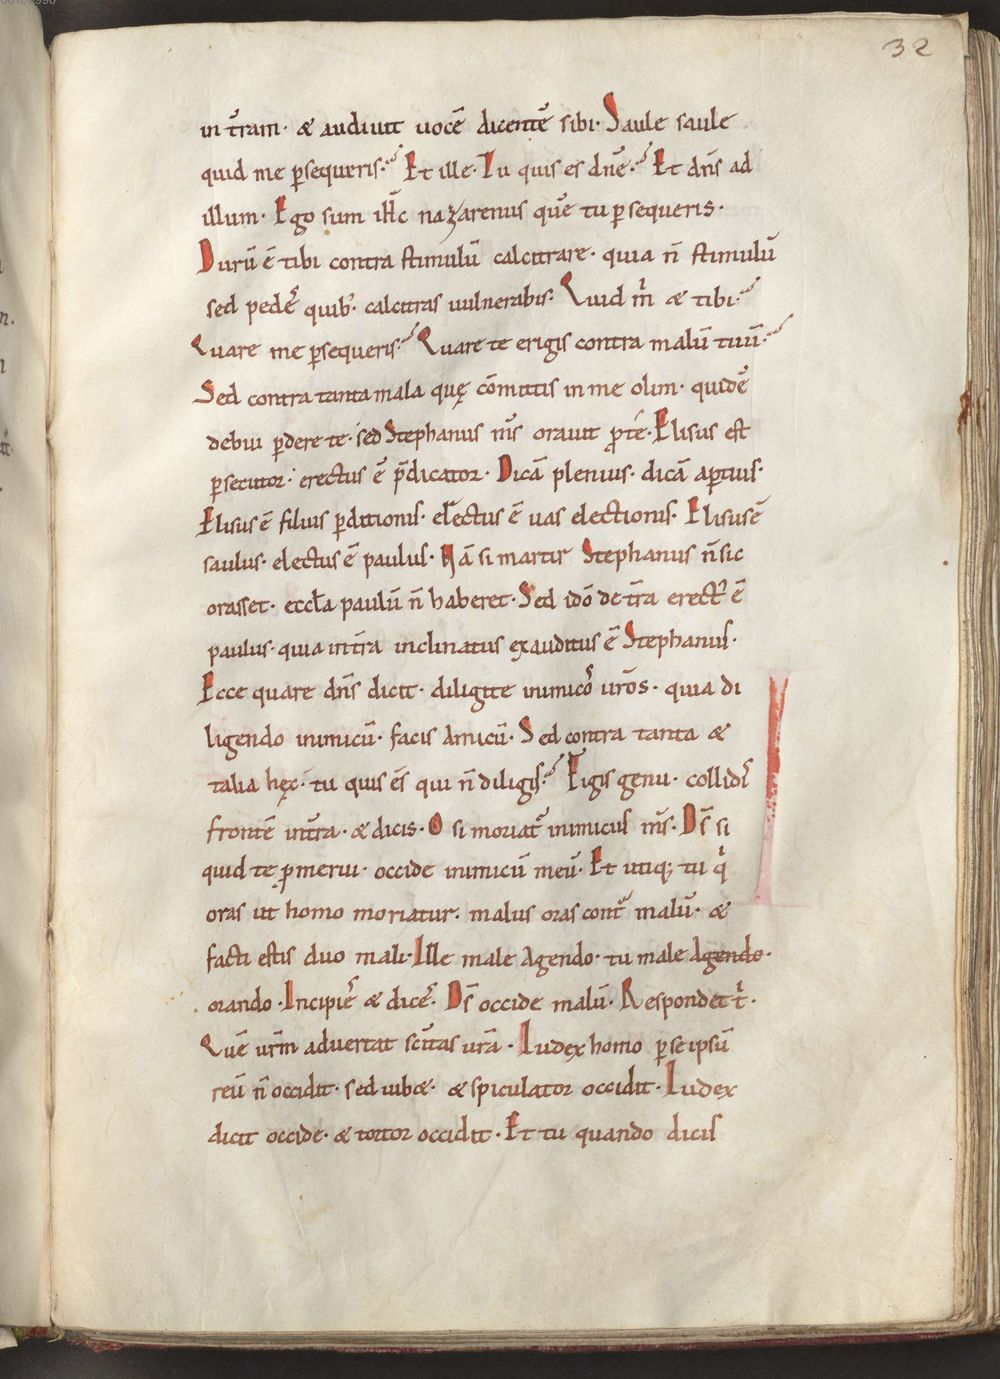 32
in t̄ram· & audiuit uocē dicentē sibi· Saule saule
quid me ꝑsequeris· Et ille· Tu quis es dn̄e· Et dn̄s ad
illum· Ego sum ih̄c nazarenus quē tu ꝑsequeris·
Durū ē tibi contra stimulū calcitrare· quia n̄ stimulū
sed pedes̄ quib; calcitras uulnerabis· Quid m̄ & tibi·
Quare me ꝑsequeris· Quare te erigis contra malū tuū·
Sed contra tanta mala quę cōmittis in me olim· quidē
debui ꝑdere te· sed Stephanus m̄s orauit ꝓ te· Elisus est
ꝑsecutor· erectus ē p̄dicator· Dicā plenius· dicā aꝑtius·
Elisus ē filius ꝑditionis· electus ē uas electionis· Elisus ē
saulus· electus ē paulus· Nā si martir Stephanus n̄ sic
orasset· eccl̄a paulū n̄ haberet· Sed idō de t̄ra erect᷒ ē
paulus· quia in t̄ra inclinatus exauditus ē Stephanus·
Ecce quare dn̄s dicit· diligite inimicos̄ ur̄os· quia di
ligendo inimicū· facis amicū· Sed contra tanta &
talia hęc· tu quis es̄ qui n̄ diligis· Figis genu· collidis̄
frontē in t̄ra· & dicis· O si moriat᷒ inimicus m̄s· Ds̄ si
quid te ꝓmerui· occide inimicū meū· Et utiq; tu q̄
oras ut homo moriatur· malus oras cont̄ malū· &
facti estis duo mali· Ille male agendo· tu male agendo·
orando· Incipies̄ & dices̄· Ds̄ occide malū· Respondet t̄·
Quē ur̄m aduertat sc̄itas ur̄a· Iudex homo ꝑ se ipsū
reū n̄ occidit· sed iub&· & spiculator occidit· Iudex
dicit occide· & tortor occidit· Et tu quando dicis